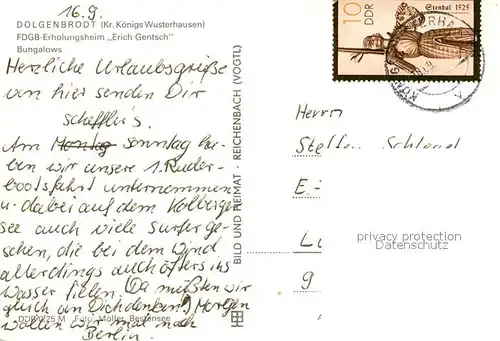 16.9.
DOLGENBRODT (Kr. Königs Wusterhausen)
FDGB-Erholungsheim „Erich Gentsch"
Bungalows
Herzliche Urlaubsgrüße
von hier senden Dir
Scheffler's.
Am Montag Sonntag ha-
ben wir unsere 1. Ruder-
bootsfahrt unternommen
u. dabei auf dem Wolziger
See auch viele Surfer ge-
sehen, die bei dem Wind
allerdings auch öfters ins
Wasser fielen. (Da mußten wir
gleich an Dich denken!) Morgen
wollen wir mal nach
Berlin.
Foto: Möller, Bestensee
BILD UND HEIMAT · REICHENBACH (VOGTL)
10
DDR
Stendal 1525
Herrn
Steffen
E.-
9
privacy protection
Datenschutz